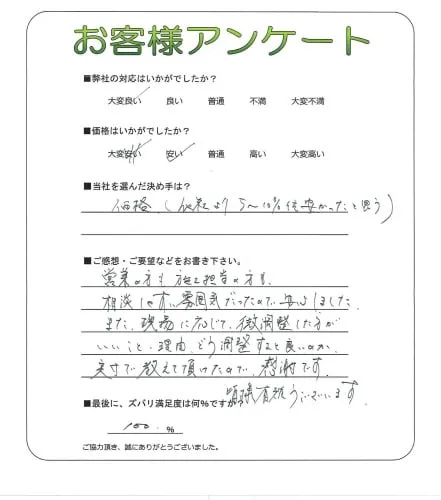 お客様アンケート
■弊社の対応はいかがでしたか？
大変良い 良い 普通 不満 大変不満
■価格はいかがでしたか？
大変安い 安い 普通 高い 大変高い
■当社を選んだ決め手は？
価格（他社より5〜10%位安かったと思う）
■ご感想・ご要望などをお書き下さい。
営業の方も施工担当の方も、
相談しやすい雰囲気だったので安心しました。
また、現場に応じて、微調整した方が
いいこと・理由、どう調整すると良いのか、
実寸で教えて頂けたので、感謝です。
有難うございます。
■最後に、ズバリ満足度は何%ですか？
100.%
ご協力頂き、誠にありがとうございました。